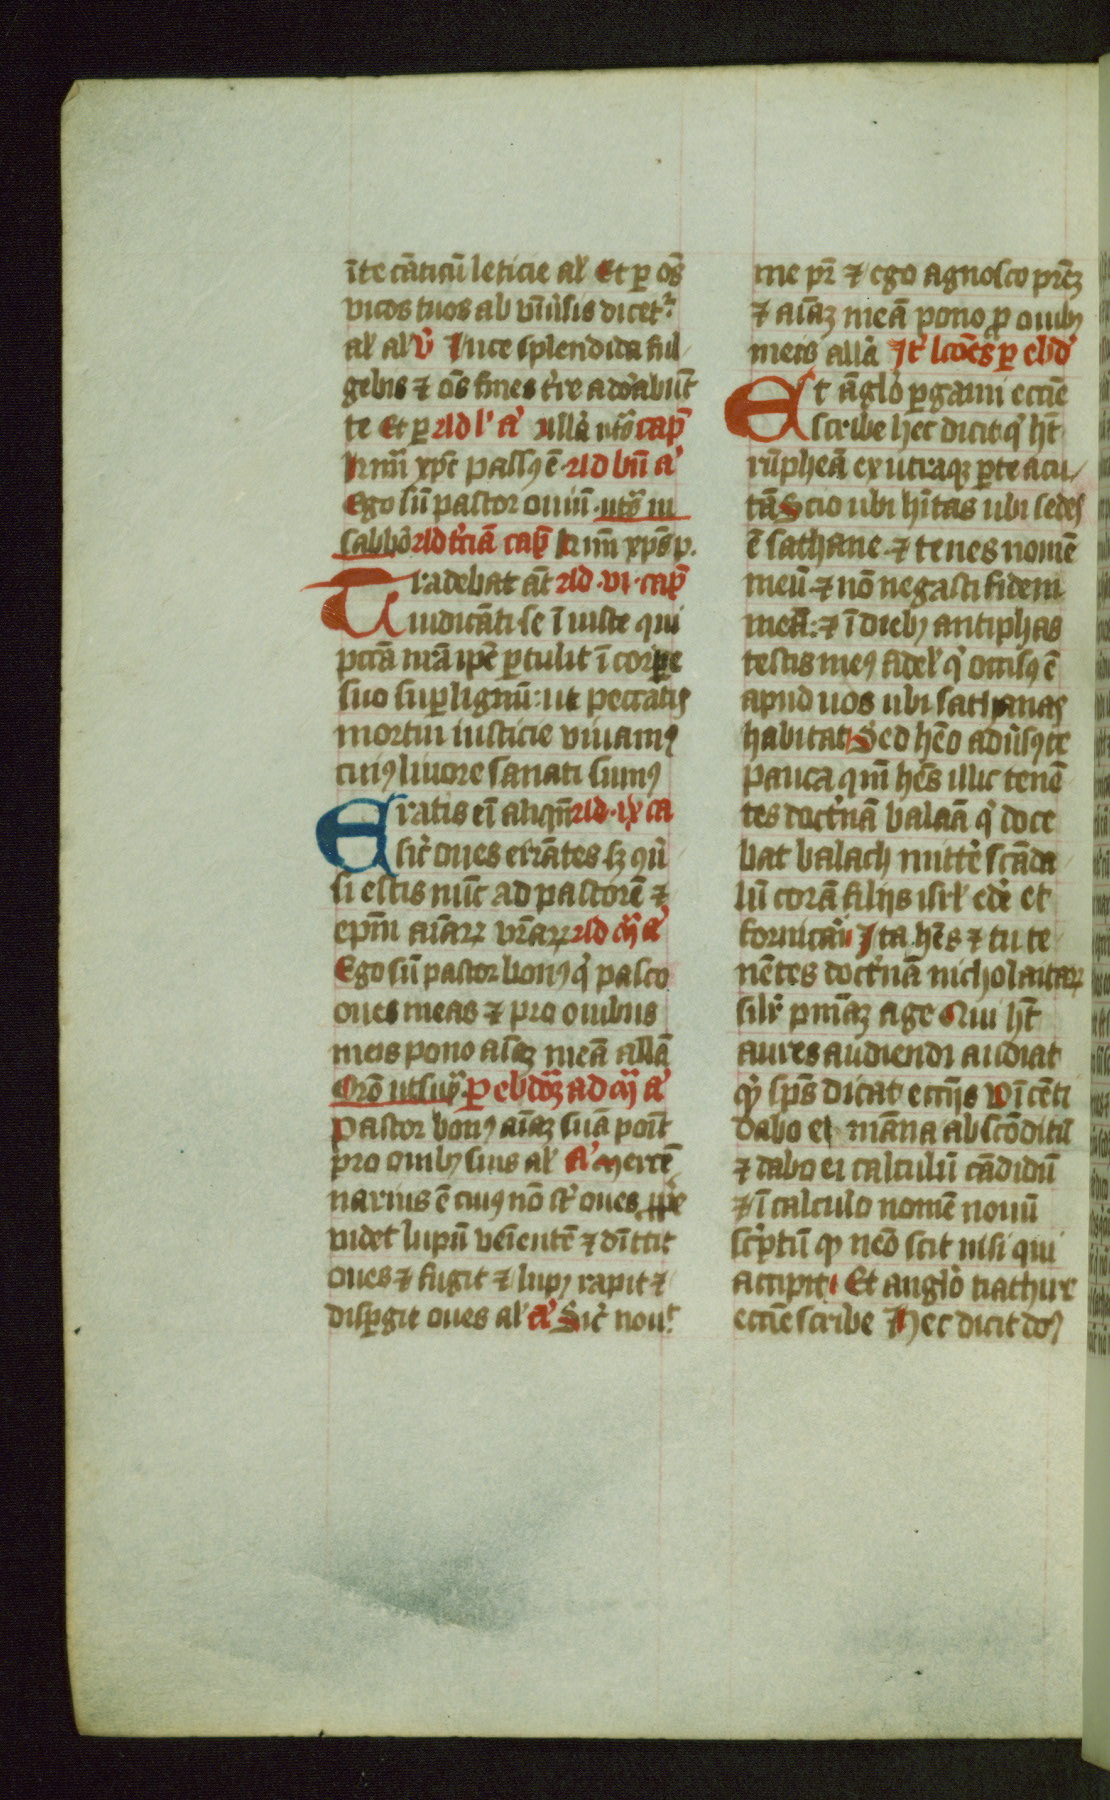 īte cāticū leticie al̄ Et p os̄
vicos tuos ab vniūsis dicet᷑
al̄ al̄ v̉ Luce splendida ful
gebis ⁊ os̄ fines tr̉re adōabūt
te Et p Ad l' a' Alla vts̄ cap̄
in mī xp̄c passꝯ ē Ad bn̄ a'
Ego sū pastor ouiū vts̄ in
sabb̄o Ad tr̉ciā cap̄ in mī xp̄s p.
Tradebat āt Ad vi cap̄
iudicāti se īiuste qui
pctā nr̄a ip̄e ptulit ī corpe
suo sup lignū: ut peccatis
mortui iusticie viuamꝯ
cuiꝯ liuore sanati sumꝯ
Eratis eī aliqn̄ Ad ix ca
sic̉ oues errātes sꝫ cōủ
si estis nūc ad pastorē ⁊
ep̄m aīaꝝ vr̄aꝝ Ad m̄ a'
Ego sū pastor bonꝯ q̉ pasco
oues meas ⁊ pro ouibus
meis pono aīaꝫ meā allā
Oro᷑ ut sup̄ P ebdōꝫ ad m̄ a'
Pastor bonꝯ aīaꝫ suā poīt
pro ouibꝯ suis al̄ a' Mercē
narius ē cuiꝯ nō st̉ oues ꝓp̉e
videt lupū veīentē ⁊ dīttit
oues ⁊ fugit ⁊ lupꝯ rapit ⁊
dispgit oues al̄ a' Sic̉ nou᷑
me pr̄ ⁊ ego agnosco prēꝫ
⁊ aīaꝫ meā pono ꝓ ouibꝯ
meis alla It̉ lcōes p ebd'
Et āglo pgami eccīe
scribe hec dicit q̉ ht̄
rūpheā ex utraqꝫ pte acu
tā Scio ubi hītas ubi sedes
ē sathane ⁊ tenes nomē
meū ⁊ nō negasti fidem
meā: ⁊ ī diebꝯ antiphas
testis meꝯ fidel̄ q̉ occisꝯ ē
apud uos ubi sathanas
habitat Sed hēo adūsꝯ te
pauca qm̄ hēs illic tenē
tes doct̉nā balaā q̉ doce
bat balach mittẻ scāda
lū corā filijs isrl̄ edẻ et
fornicari Ita hēs ⁊ tu te
nētes doct̉nā nicholaitaꝝ
silr̉ pnīaꝫ age Qui ht̄
aures audiendi audiat
qͥ sps̄ dicat eccīis Vīcēti
dabo ei māna abscōditū
⁊ dabo ei calculū cādidū
⁊ ī calculo nomē nouū
scptū qͦ nēo scit nisi qui
accipit Et anglo tiathire
eccīe scribe Hec dicit dō